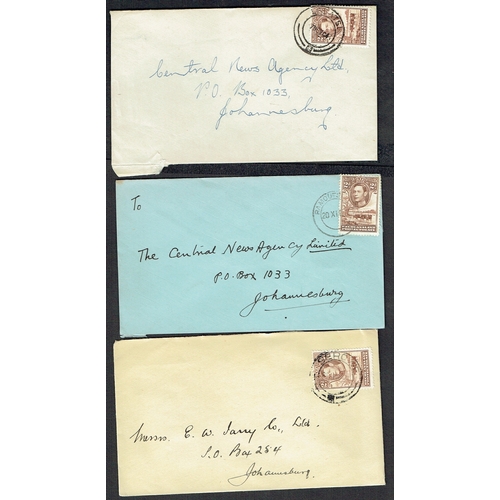 Central News Agency Ltd,
P.O. Box 1033,
Johannesburg
To
The Central News Agency Limited
P.O. Box 1033
Johannesburg
Messrs. E. W. Tarry Co., Ltd.
P.O. Box 284
Johannesburg.